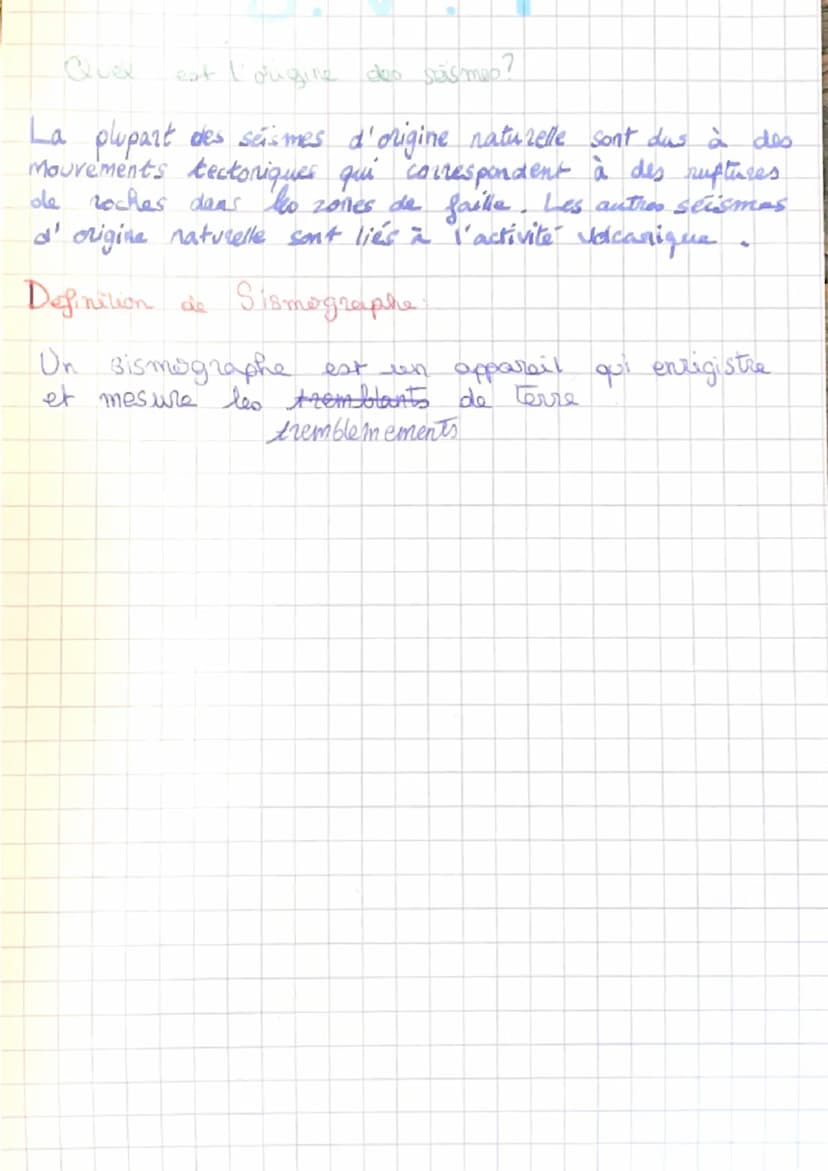 Quel est l'origine des séismes?
La plupart des séismes d'origine naturelle sont dus à des
mouvements tectoniques qui correspondent à des ruptures
de roches dans les zones de faille. Les autres séismes
d'origine naturelle sont liés à l'activité volcanique.
Definition de Sismographe:
Un sismographe est un apparail qui enrigistre
et mesure les tremblants de Terre
tremblemements